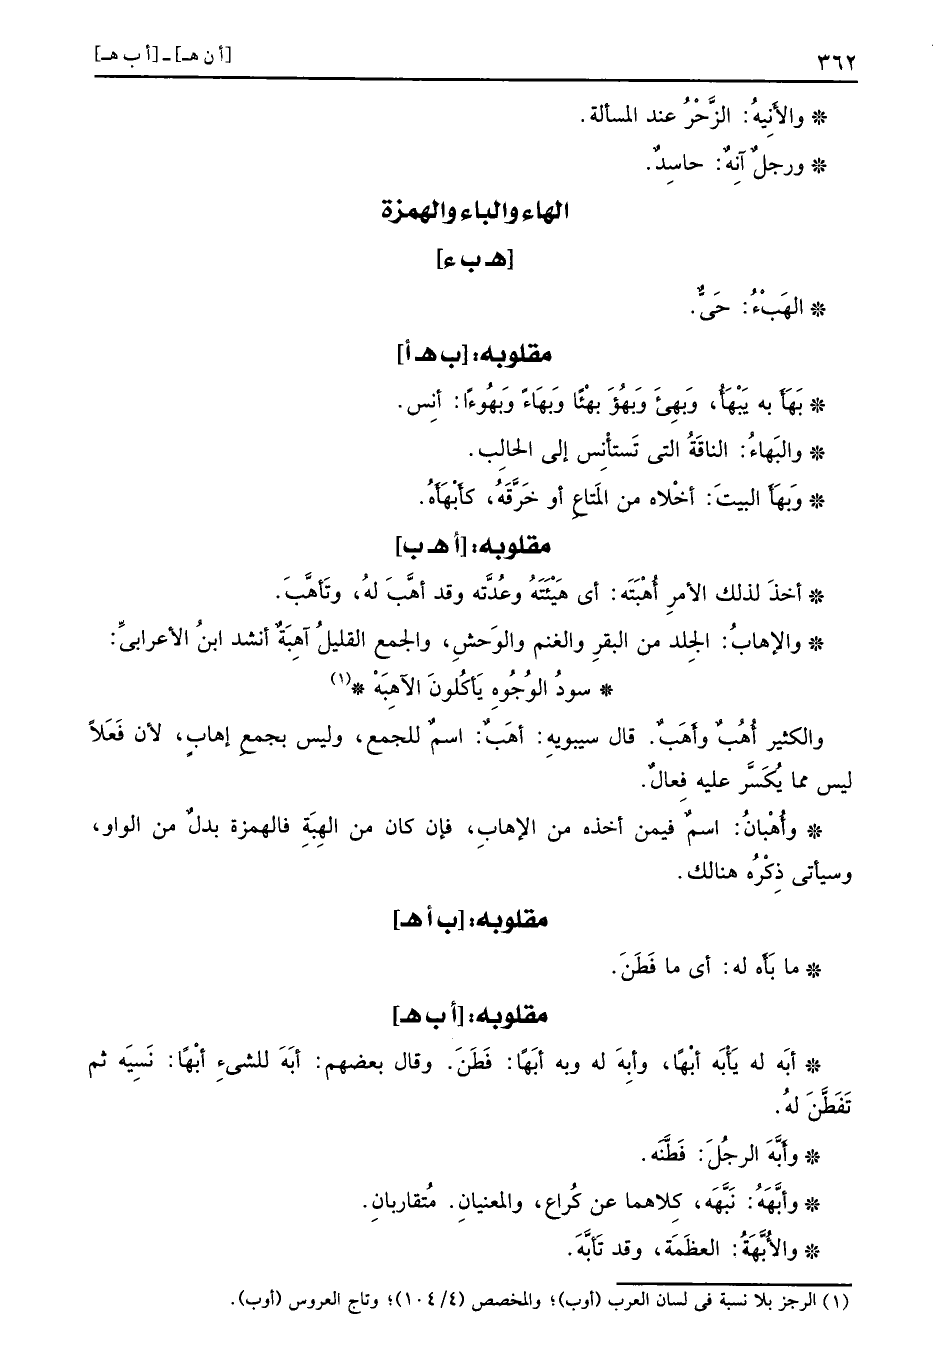 ٣٦٢
[أ ن هـ] ـ [أ ب هـ]
* والأَنِيهُ: الزَّحْرُ عند المسألة.
* ورجلٌ آنِهٌ: حاسِدٌ.
الهاء والباء والهمزة
[هـ ب ء]
* الهَبْءُ: حَىٌّ.
مقلوبه: [ب هـ أ]
* بَهَأَ به يَبْهَأُ، وَبَهِئَ وَبَهُؤَ بهْئًا وَبَهَاءً وَبَهُوءًا: أنس.
* والبَهاءُ: الناقَةُ التى تَستأْنِس إلى الحالِب.
* وَبهَأَ البيتَ: أخْلاه من المَتاعِ أو خَرَّقَهُ، كأَبْهَأَهُ.
مقلوبه: [أ هـ ب]
* أخذَ لذلك الأمرِ أُهْبَتَه: أى هَيْئَتَهُ وعُدَّته وقد أهَّبَ لهُ، وتَأهَّبَ.
* والإهابُ: الجِلد من البقرِ والغنم والوَحشِ، والجمع القليلُ آهِبَةٌ أنشد ابنُ الأعرابىِّ:
* سودُ الوُجُوهِ يَأكُلونَ الآهِبَهْ *(١)
والكثير أُهُبٌ وأَهَبٌ. قال سيبويهِ: أهَبٌ: اسمٌ للجمع، وليس بجمع إهابٍ، لأن فَعَلاً
ليس مما يُكَسَّر عليه فِعالٌ.
* وأُهْبانُ: اسمٌ فيمن أخذه من الإهابِ، فإن كان من الهِبَةِ فالهمزة بدلٌ من الواو،
وسيأتى ذِكْرُه هنالك.
مقلوبه: [ب أ هـ]
* ما بَأَه له: أى ما فَطَنَ.
مقلوبه: [أ ب هـ]
* أبَه له يَأْبَه أبْهًا، وأبِهَ له وبه أبَهًا: فَطَنَ. وقال بعضهم: أبَهَ للشىءِ أبْهًا: نَسِيَه ثم
تَفَطَّنَ لهُ.
* وأَبَّهَ الرجُلَ: فَطَّنَه.
* وأبَّهَهُ: نَبَّهَه، كِلاهما عن كُراعٍ، والمعنيانِ. مُتقاربانِ.
* والأُبَّهَةُ: العظَمَة، وقد تَأَبَّهَ.
(١) الرجز بلا نسبة فى لسان العرب (أوب)؛ والمخصص (٤/ ١٠٤)؛ وتاج العروس (أوب).